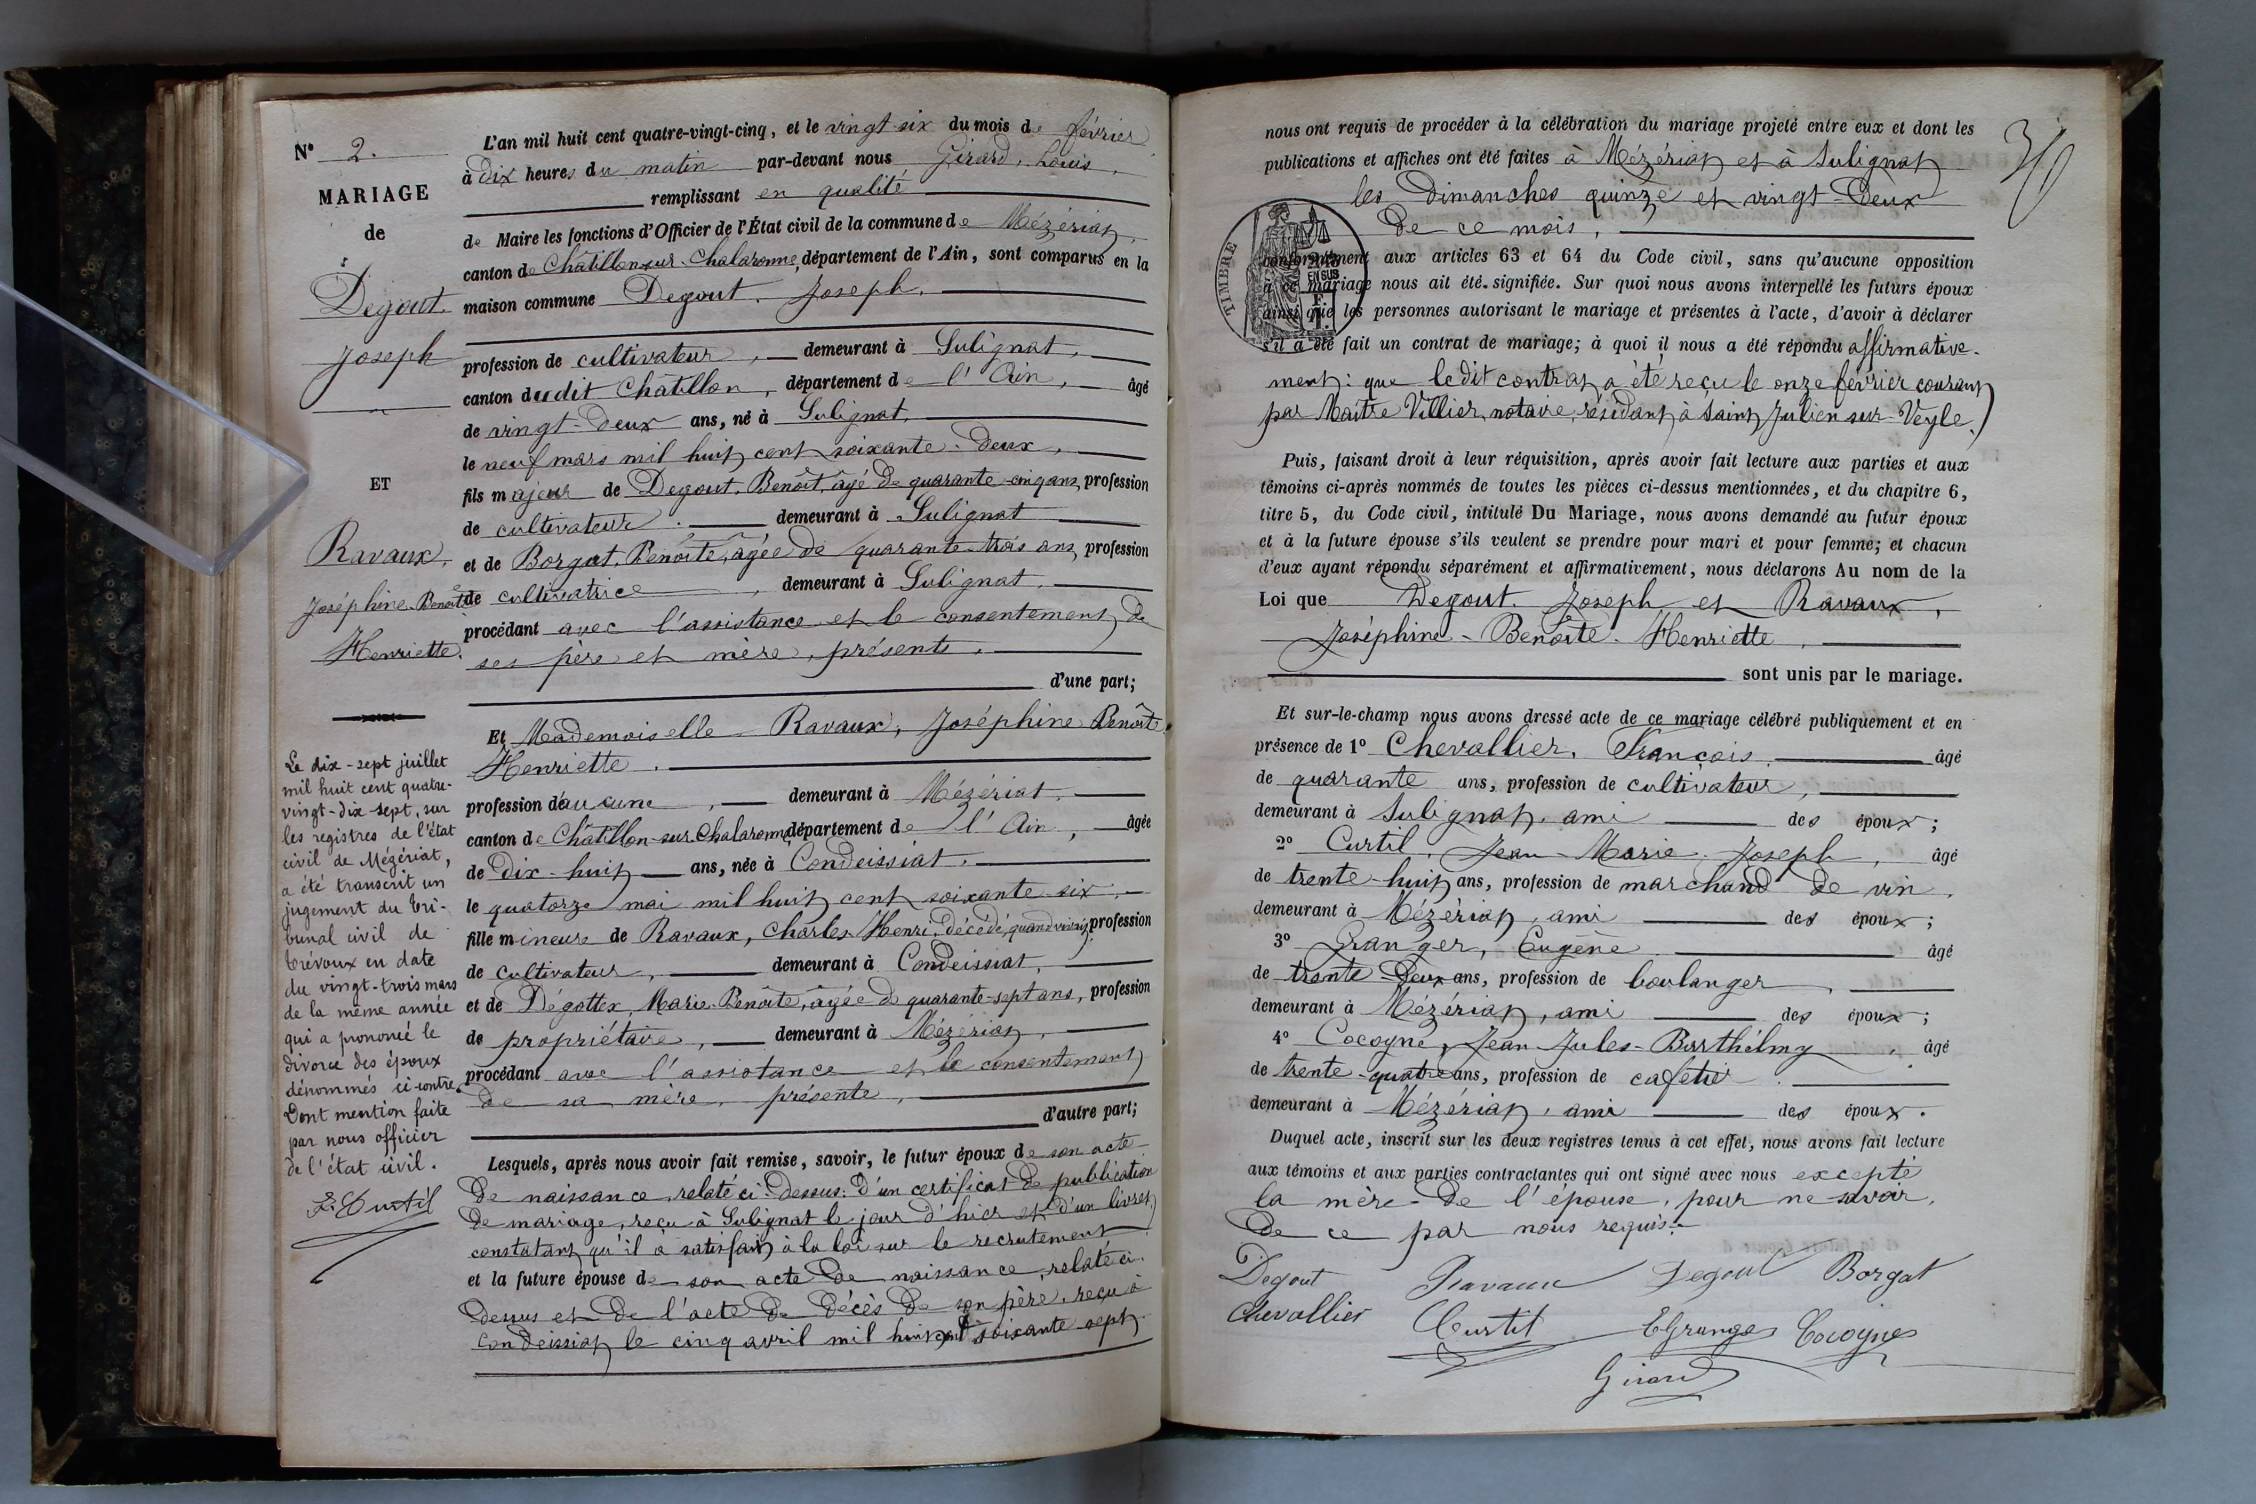 N° 2.
MARIAGE
de
Degout.
Joseph
ET
Ravaux,
Joséphine Benoîte
Henriette.
Le dix-sept juillet
mil huit cent quatre-
vingt-dix-sept, sur
les registres de l'état
civil de Mézériat,
a été transcrit un
jugement du tri-
bunal civil de
Trévoux en date
du vingt-trois mars
de la même année
qui a prononcé le
divorce des époux
dénommés ci-contre
Dont mention faite
par nous officier
de l'état civil.
Curtil
L'an mil huit cent quatre-vingt-cinq, et le vingt-six du mois de février
à dix heures du matin par-devant nous Girard, Louis,
remplissant en qualité
de Maire les fonctions d'Officier de l'État civil de la commune de Mézériat,
canton de Châtillon-sur-Chalaronne, département de l'Ain, sont comparus en la
maison commune Degout, Joseph,
profession de cultivateur, demeurant à Sulignat,
canton dudit Châtillon, département de l'Ain, âgé
de vingt-deux ans, né à Sulignat,
le neuf mars mil huit cent soixante-deux,
fils majeur de Degout, Benoît, âgé de quarante-cinq ans, profession
de cultivateur, demeurant à Sulignat
et de Borgat, Benoîte, âgée de quarante-trois ans, profession
de cultivatrice, demeurant à Sulignat,
procédant avec l'assistance et le consentement de
ses père et mère, présents,
d'une part;
Et Mademoiselle Ravaux, Joséphine Benoîte
Henriette,
profession d'aucune, demeurant à Mézériat,
canton de Châtillon-sur-Chalaronne, département de l'Ain, âgée
de dix-huit ans, née à Condeissiat,
le quatorze mai mil huit cent soixante-six,
fille mineure de Ravaux, Charles-Henri, décédé, quand vivait, profession
de cultivateur, demeurant à Condeissiat,
et de Dégottex, Marie-Benoîte, âgée de quarante-sept ans, profession
de propriétaire, demeurant à Mézériat,
procédant avec l'assistance et le consentement
de sa mère, présente,
d'autre part;
Lesquels, après nous avoir fait remise, savoir, le futur époux de son acte
de naissance, relaté ci-dessus: d'un certificat de publication
de mariage, reçu à Sulignat le jour d'hier et d'un livret
constatant qu'il a satisfait à la loi sur le recrutement
et la future épouse de son acte de naissance, relaté ci-
dessus et de l'acte de décès de son père, reçu à
Condeissiat le cinq avril mil huit cent soixante-sept
nous ont requis de procéder à la célébration du mariage projeté entre eux et dont les
publications et affiches ont été faites à Mézériat et à Sulignat
les dimanches quinze et vingt-deux
de ce mois,
TIMBRE
EN SUS
conformément aux articles 63 et 64 du Code civil, sans qu'aucune opposition
à ce mariage nous ait été signifiée. Sur quoi nous avons interpellé les futurs époux
ainsi que les personnes autorisant le mariage et présentes à l'acte, d'avoir à déclarer
s'il a été fait un contrat de mariage; à quoi il nous a été répondu affirmative-
ment: que le dit contrat a été reçu le onze février courant
par Maître Villier, notaire, résidant à Saint Julien sur Veyle.
Puis, faisant droit à leur réquisition, après avoir fait lecture aux parties et aux
témoins ci-après nommés de toutes les pièces ci-dessus mentionnées, et du chapitre 6,
titre 5, du Code civil, intitulé Du Mariage, nous avons demandé au futur époux
et à la future épouse s'ils veulent se prendre pour mari et pour femme; et chacun
d'eux ayant répondu séparément et affirmativement, nous déclarons Au nom de la
Loi que Degout, Joseph et Ravaux,
Joséphine-Benoîte-Henriette,
sont unis par le mariage.
Et sur-le-champ nous avons dressé acte de ce mariage célébré publiquement et en
présence de 1° Chevallier, François, âgé
de quarante ans, profession de cultivateur,
demeurant à Sulignat, ami des époux;
2° Curtil, Jean-Marie Joseph, âgé
de trente-huit ans, profession de marchand de vin,
demeurant à Mézériat, ami des époux;
3° Granger, Eugène âgé
de trente-deux ans, profession de boulanger,
demeurant à Mézériat, ami des époux;
4° Cocogne, Jean Jules-Barthélmy, âgé
de trente-quatre ans, profession de cafetier
demeurant à Mézériat, ami des époux.
Duquel acte, inscrit sur les deux registres tenus à cet effet, nous avons fait lecture
aux témoins et aux parties contractantes qui ont signé avec nous excepté
la mère de l'épouse, pour ne savoir,
de ce par nous requis.
Degout Ravaux Degout Borgat
Chevallier Curtil EGranger Cocogne
Girard